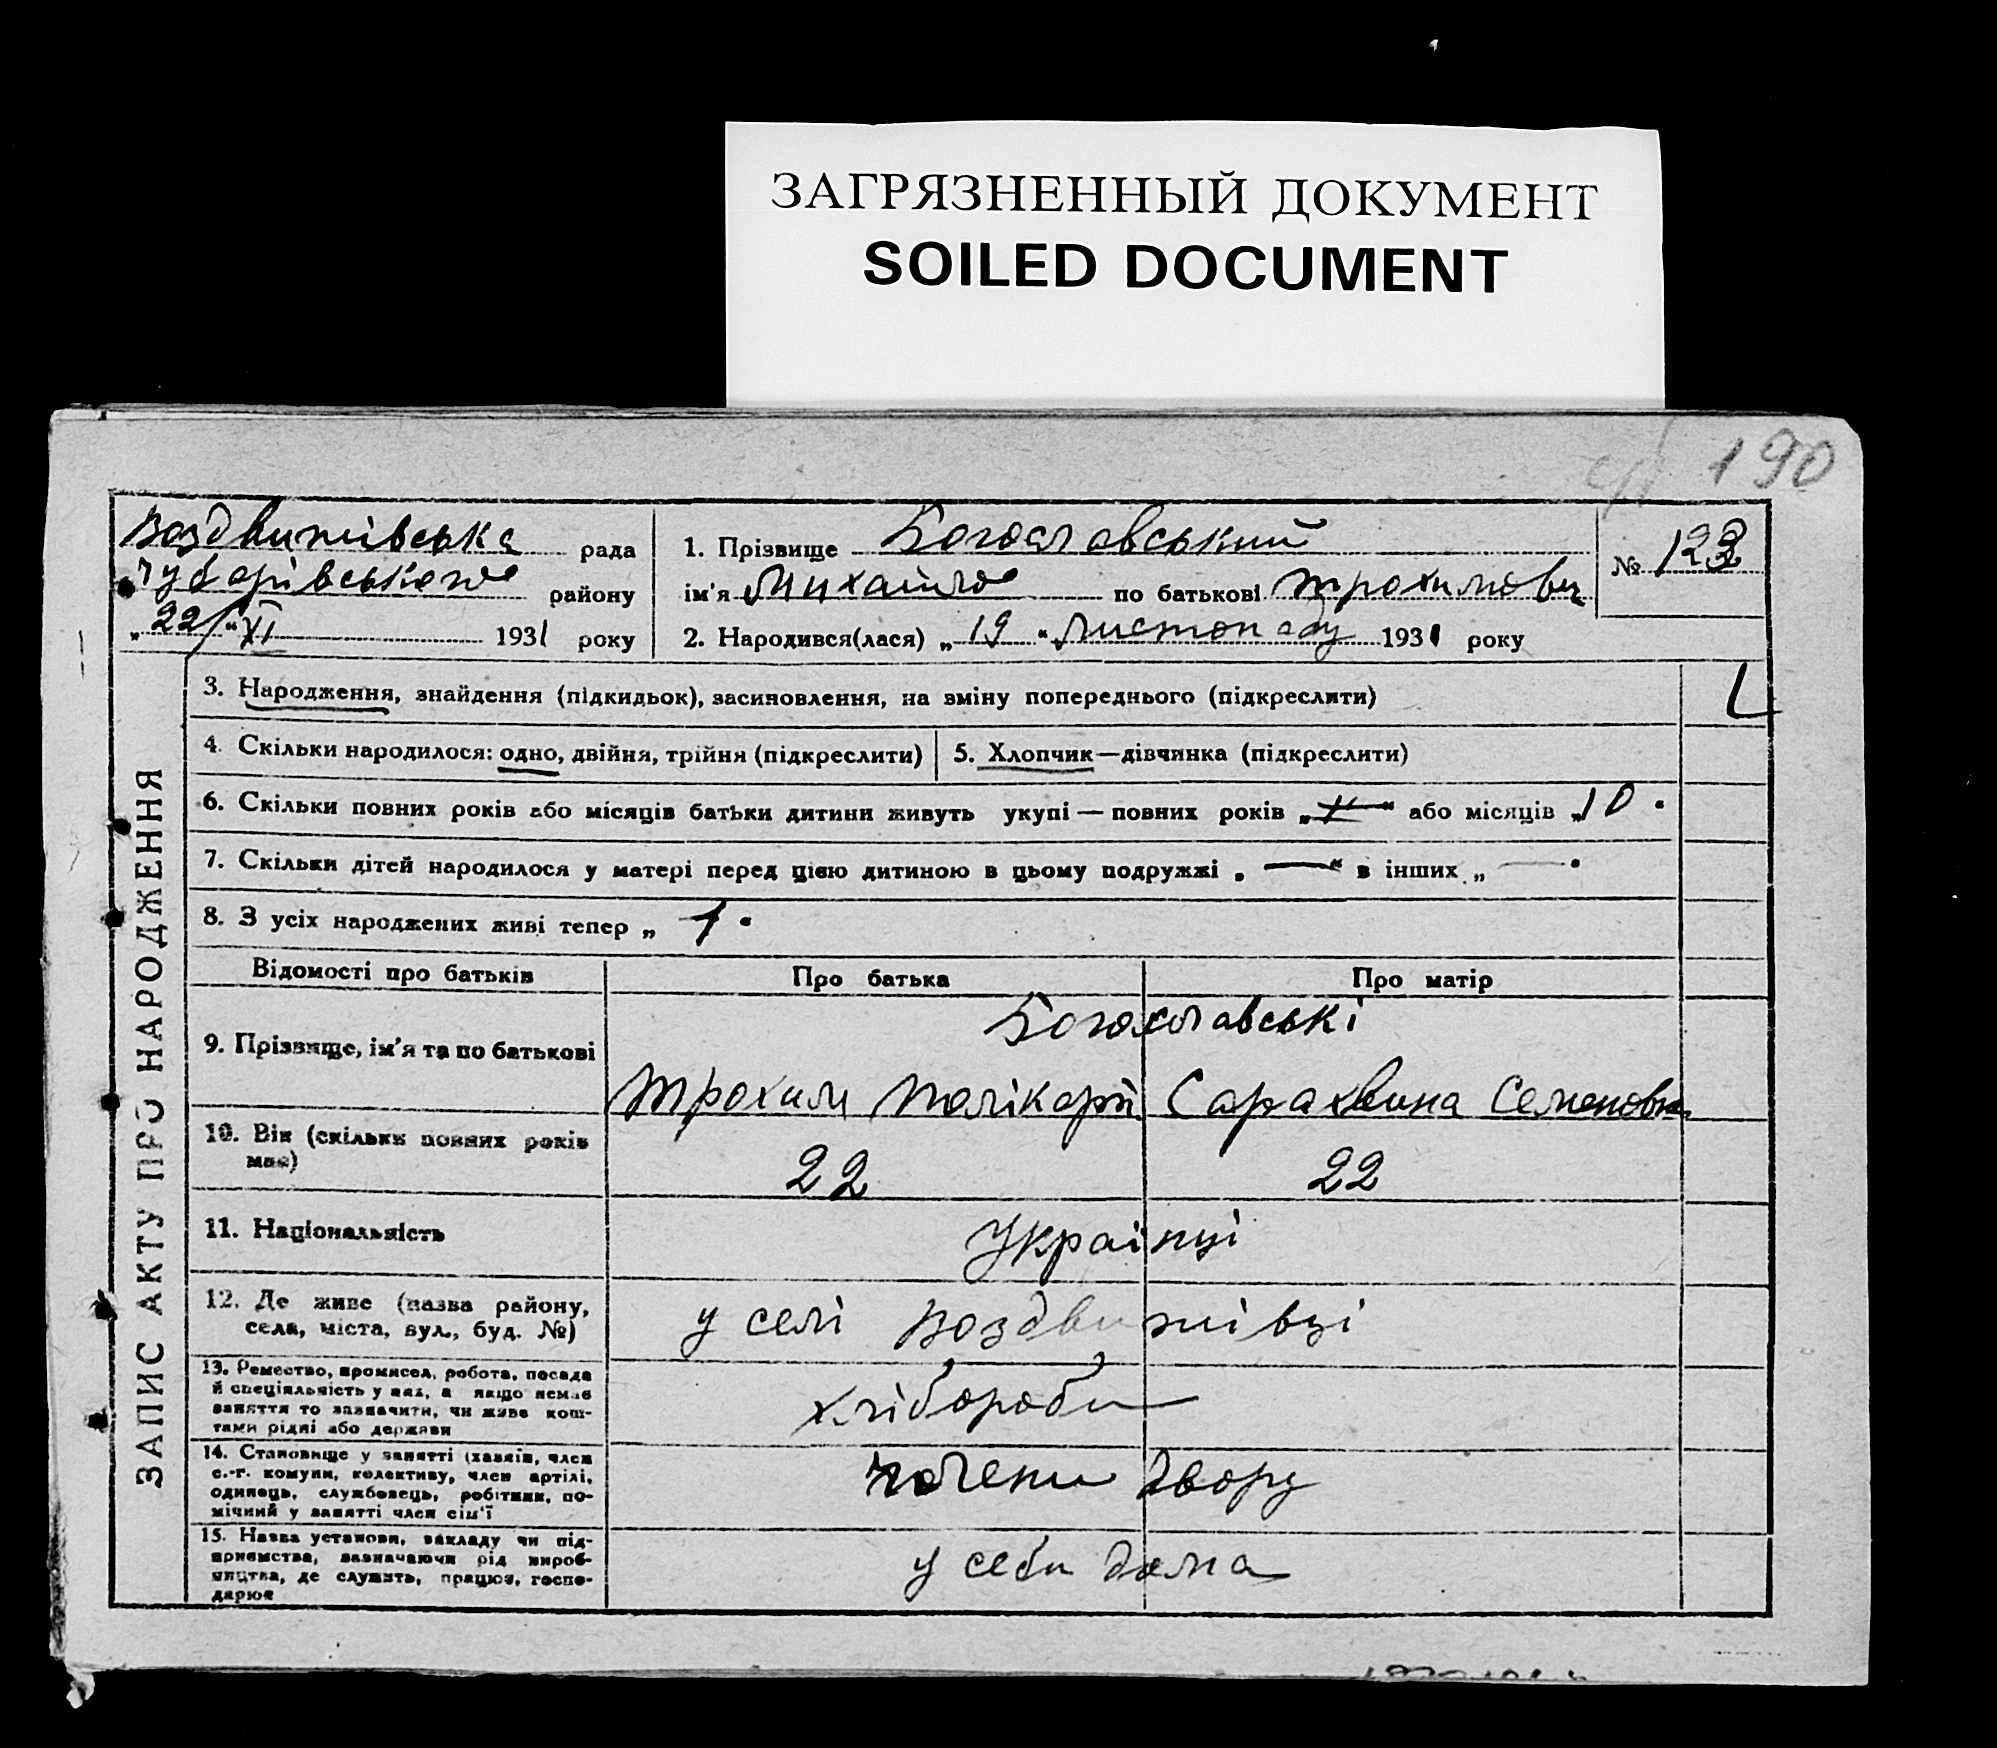 ЗАГРЯЗНЕННЫЙ ДОКУМЕНТ
SOILED DOCUMENT
190
Воздвижівська рада
Чубарівського району
„22/“ XI 1931 року
1. Прізвище Богославський
ім'я Михайло по батькові Трохимович
2. Народився(лася) „19“ Листопаду 1931 року
№ 123
ЗАПИС АКТУ ПРО НАРОДЖЕННЯ
3. Народження, знайдення (підкидьок), засиновлення, на зміну попереднього (підкреслити)
4. Скільки народилося: одно, двійня, трійня (підкреслити)
5. Хлопчик—дівчинка (підкреслити)
6. Скільки повних років або місяців батьки дитини живуть укупі — повних років „ “ або місяців „10.
7. Скільки дітей народилося у матері перед цією дитиною в цьому подружжі „ — “ в інших „ —
8. З усіх народжених живі тепер „ 1.
Відомості про батьків
Про батька
Про матір
9. Прізвище, ім'я та по батькові
Богославські
Трохим Полікарп. Сарахвина Семеновна
10. Вік (скільки повних років
має)
22
22
11. Національність
Українці
12. Де живе (назва району,
села, міста, вул., буд. №)
у селі Воздвижівці
13. Ремество, промисел, робота, посада
й спеціяльність у них, а якщо немає
заняття то зазначити, чи живе кош-
тами рідні або держави
хлібороби
14. Становище у занятті (хазяїн, член
с.-г. комуни, колективу, член артілі,
одинець, службовець, робітник, по-
мічний у занятті член сім'ї
члени двору
15. Назва установи, закладу чи під-
приємства, зазначаючи рід вироб-
ництва, де служить, працює, госпо-
дарює
у себи дома